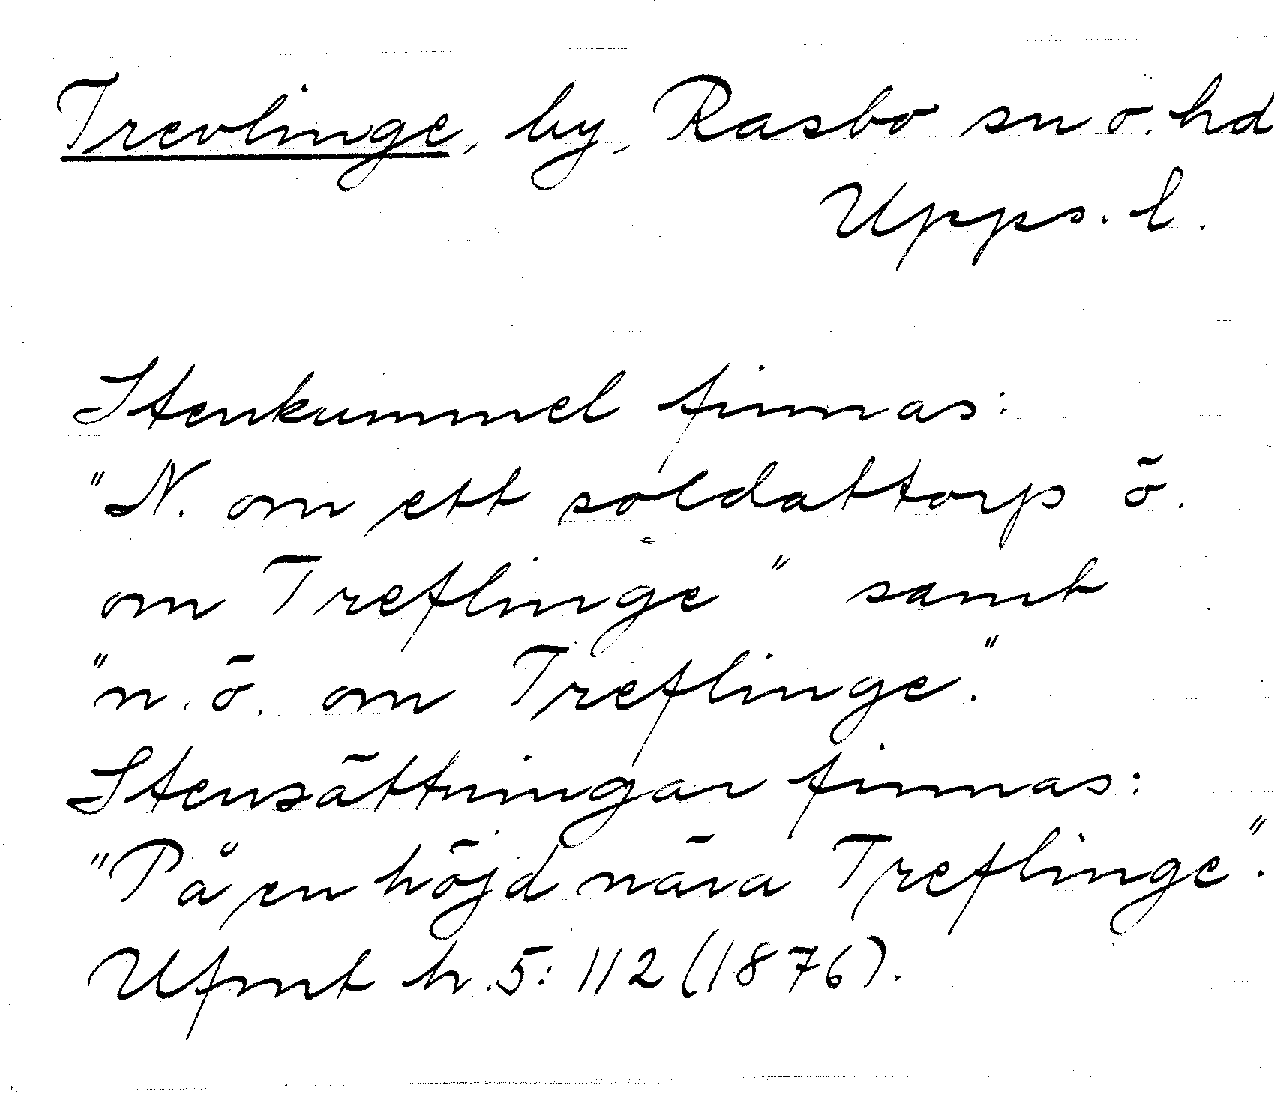 Trevlinge, by, Rasbo sn o. hd
Upps. l.
Stenkummel finnas:
"N. om ett soldattorp ö.
om Treflinge" samt
"n. ö. om Treflinge."
Stensättningar finnas:
"På en höjd nära Treflinge".
Ufmt h. 5: 112 (1876).